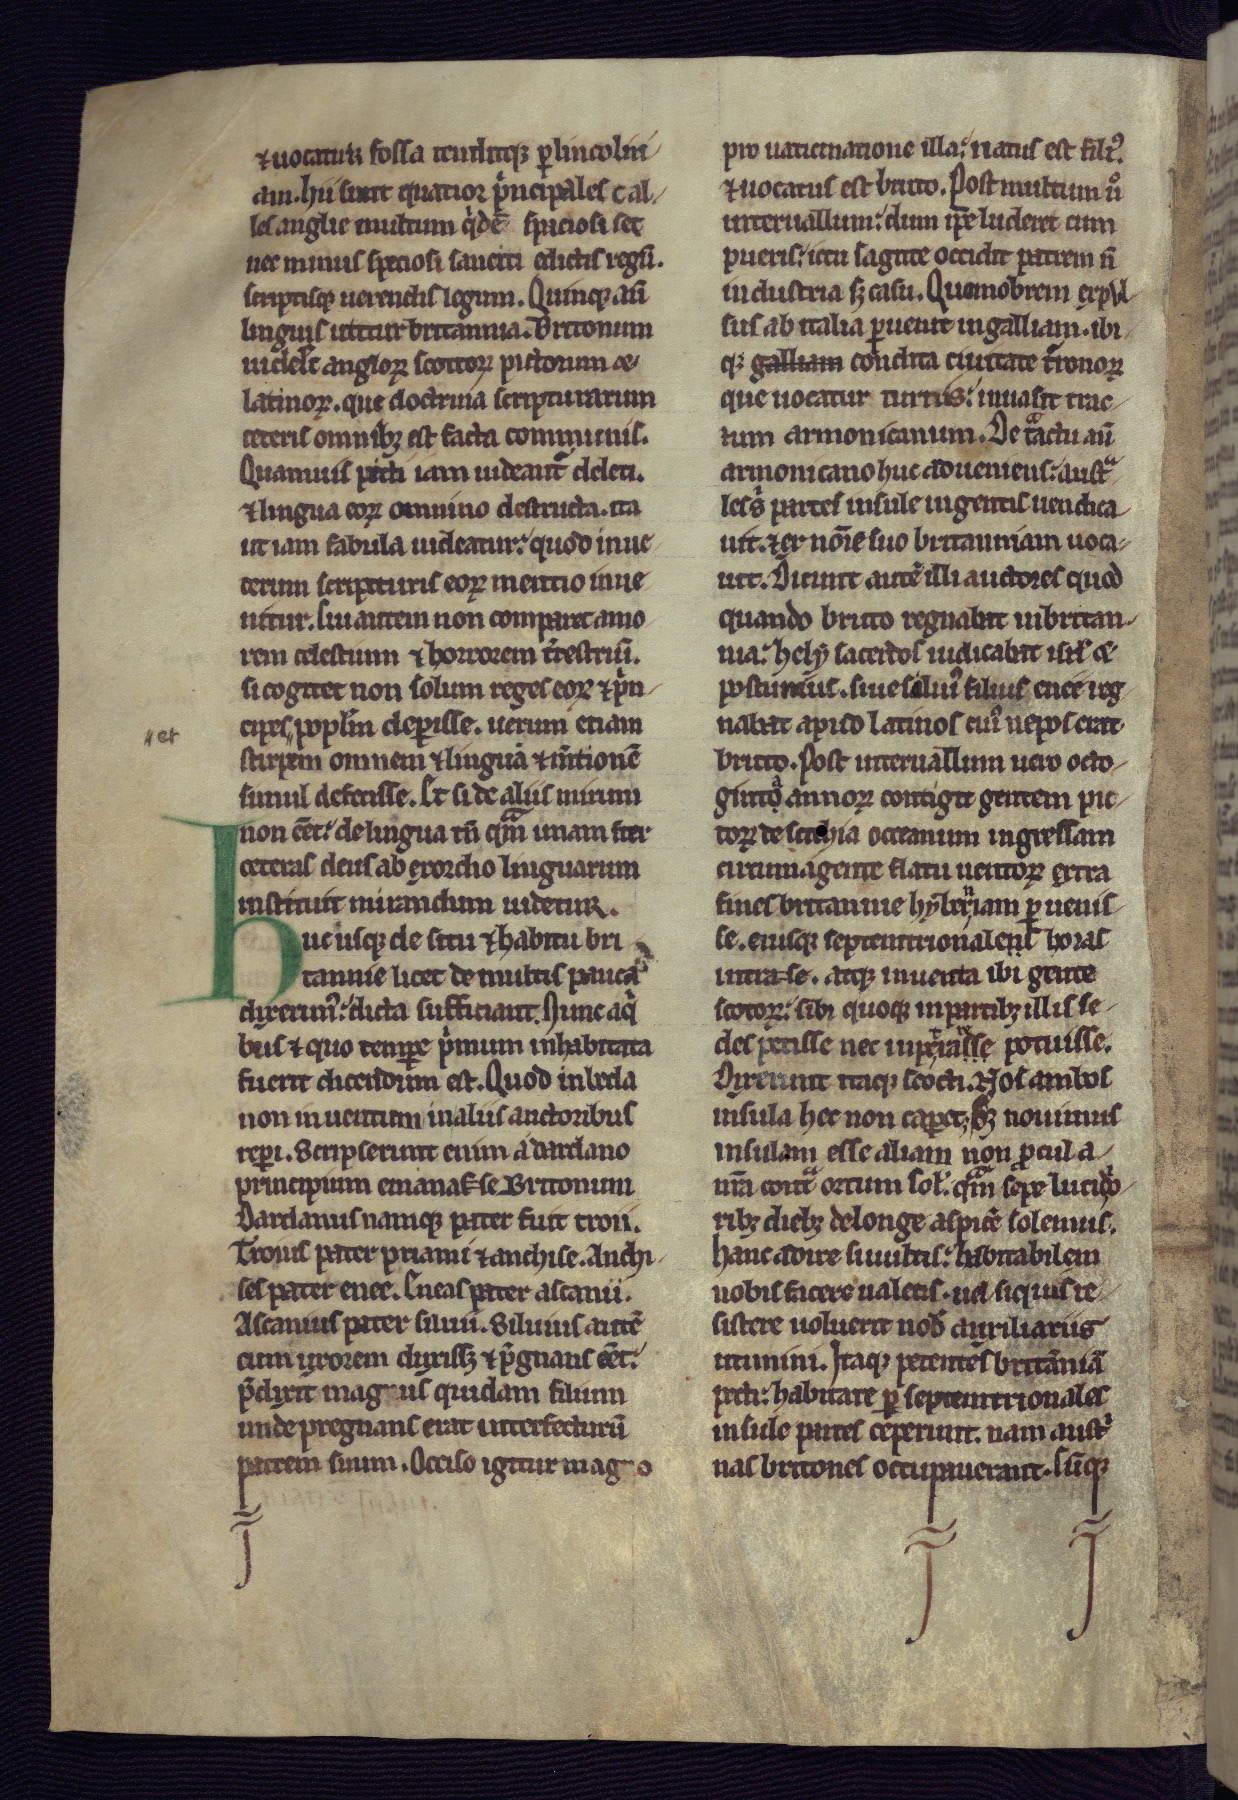 ⁊ uocatur fossa tenditqꝫ ꝑ lincolni
am. hii sunt quatior pͥncipales cal-
les anglie multum qͥdē spiciosi set
nec minus speciosi sanciti edictis regū.
scriptisqꝫ uerendis legum. Quinqꝫ aū
linguis utitur britannia. Britonum
uidelꝫ angloꝝ scottoꝝ pictorum ⁊
latinoꝝ. que doctrina scripturarum
ceteris omnibꝫ est facta communis.
Quamuis picti iam uideant᷑ deleti.
⁊ lingua eoꝝ omnino destructa. ita
ut iam fabula uideatur: quod in ue
terum scripturis eoꝝ mentio inue
nitur. Cui autem non comparet amo
rem celestium ⁊ horrorem t̄restriū.
si cogitet non solum reges eoꝝ ⁊ pͥn
cipes,, popl̄m deꝑisse. uerum etiam
,, et
stirpem omnem ⁊ linguā ⁊ m̄tionē
simul defecisse. Et si de aliis mirum
non eēt: de lingua tn̄ qᵃm unam īter
ceteras deus ab exordio linguarum
instituit mirandum uidetur.
Huc usqꝫ de situ ⁊ habitu bri
tannie licet de multis pauca
dixerimꝰ: dicta sufficiant. Nunc a qͥ
bus ⁊ quo tempe pͥmum inhabitata
fuerit dicendum est. Quod in beda
non inuentum in aliis auctoribus
reꝑi. Scripserunt enim a dardano
principium emanasse Britonum
Dardanus namqꝫ pater fuit troii.
Troius pater priami ⁊ anchise. Anchi
ses pater enee. Eneas pater ascanii.
Ascanius pater siluii. Siluius autē
cum uxorem duxissꝫ ⁊ p̄gnans eēt:
p̄dixit magnus quidam filium
unde pregnans erat interfecturū
patrem suum. Occiso igitur magno
pro uaticinatione illa: natus est filiꝰ.
⁊ uocatus est bruto. Post multum uͦ
interuallum: dum ip̄e luderet cum
pueris: ictu sagitte occidit patrem n̄
industria sꝫ casu. Quamobrem expul
sus ab italia ꝑuenit in galliam. ibi
qꝫ galliam condita ciuitate t̄ronoꝝ
que uocatur turris: inuasit trac
tum armonicanum. De tᵃctu aū
armonicano huc adueniens: austᵃ
les sͥ partes insule ingentis uendica
uit. ⁊ ex nōie suo britanniam uoca
uit. Dicunt autē illi auctores quod
quando bruto regnabat in britan
nia: hely sacerdos iudicabat isrl̄ ⁊
postumius. siue siluiꝰ filius enee reg
nabat apud latinos cuiꝰ nepos erat
bruto. Post interuallum uero octo
gintᵃ annoꝝ contigit gentem pic
toꝝ de scithia occeanum ingressam
circumagente flatu uentoꝝ extra
fines britannie hyberniam ꝑuenis
se. eiusqꝫ septentrionales horas
intrasse. atqꝫ inuenta ibi gente
scotoꝝ: sibi quoqꝫ in partibꝫ illis se
des petisse nec inpetrasse potuisse.
Dixerunt itaqꝫ scocti. Nos ambos
insula hec non caꝑet, sꝫ nouimus
insulam esse aliam non ꝓcul a
nr̄a contᵃ ortum sol᷑. qᵃm sepe lucidio
ribꝫ diebꝫ de longe aspicē solemus.
hanc adire si uultis: habitabilem
nobis facere ualetis. uel si quis re
sistere uoluerit nob̄ auxiliariis
utimini. Itaqꝫ petentes britāniā
picti: habitare ꝑ septentrionales
insule partes ceperunt. nam austͥ
nas britones occupauerant. Cūqꝫ